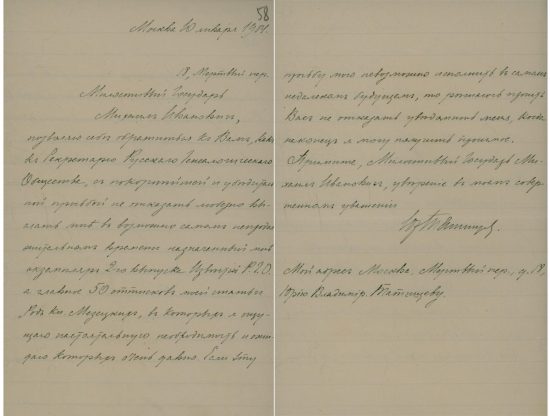 58
Москва 10 января 1904.
18, Мертвый пер.
Милостивый Государь
Михаил Иванович,
позволяю себе обратиться к Вам, как
к Секретарю Русского Генеалогического
Общества, с покорнейшей и убедитель-
ной просьбой не отказать
мне в возможно самом непродол-
жительном времени назначенный мне
экземпляр 2-го выпуска Р.Г.О.
а главное 50 оттисков моей статьи
Мезецких, в которых я ощу-
щаю настоятельную необходимость и ожи-
даю которых очень давно. Если эту
просьбу мою невозможно исполнить в самом
недалеком будущем, то решаюсь просить
Вас не отказать уведомить меня, когда
наконец я могу получить
Примите, Милостивый Государь Ми-
хаил Иванович, уверение в моем совер-
шенном уважении
ЮТатищев.
Мой адрес Москва, Мертвый пер., д. 18,
Юрию Владимир. Татищеву.